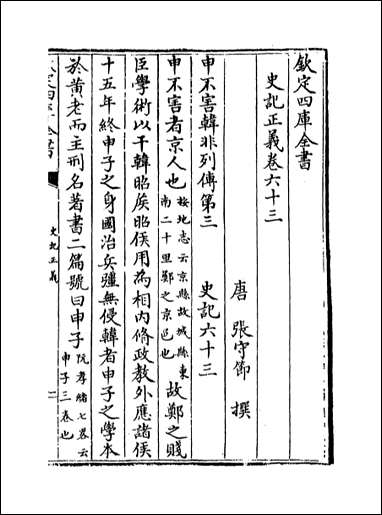 欽定四庫全書
史記正義卷六十三
唐 張守節 撰
申不害韓非列傳第三 史記六十三
申不害者京人也
按地志云京縣故城縣東
南二十里鄭之京邑也
故鄭之賤
臣學術以干韓昭矦昭侯用為相内脩政敎外應諸侯
十五年終申子之身國治兵彊無侵韓者申子之學本
於黄老而主刑名著書二篇號曰申子
阮孝緒七畧云
申子三卷也
史記正義